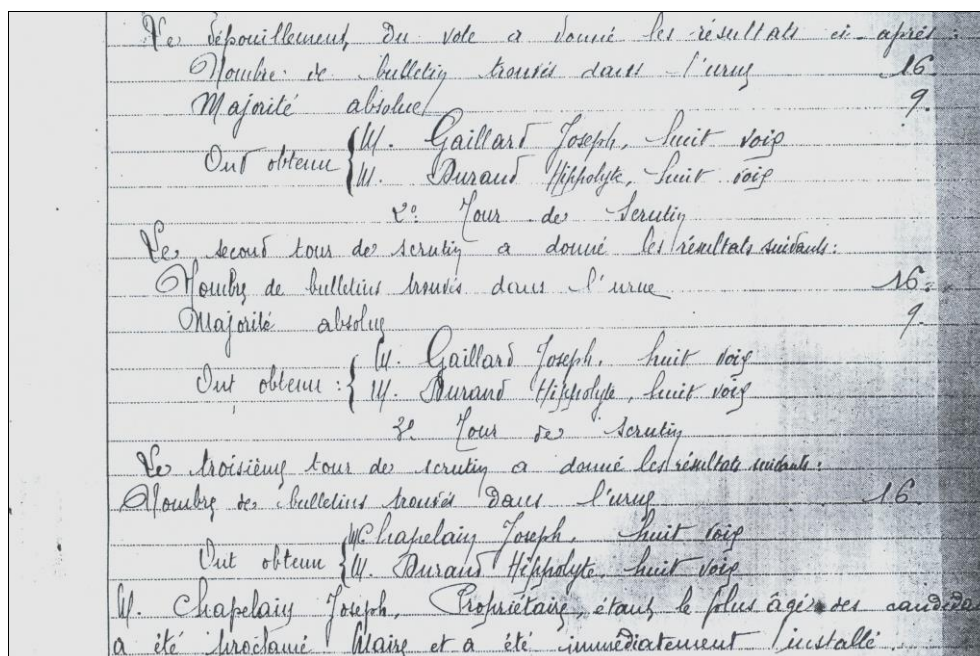 Le dépouillement, du vote a donné les résultats ci-après:
Nombre de bulletin trouvés dans l'urne 16.
Majorité absolue 9.
Ont obtenu { M. Gaillard Joseph, huit voix
M. Durand Hippolyte, huit voix
2e Tour de Scrutin
Le second tour de scrutin a donné les résultats suivants:
Nombre de bulletins trouvés dans l'urne 16.
Majorité absolue 9.
Ont obtenu : { M. Gaillard Joseph, huit voix
M. Durand Hippolyte, huit voix
3e Tour de scrutin
Le troisième tour de scrutin a donné les résultats suivants:
Nombre de bulletins trouvés dans l'urne 16
Ont obtenu { M. Chapelain Joseph, huit voix
M. Durand Hippolyte, huit voix
M. Chapelain Joseph, Propriétaire, étant le plus âgé des candidats
a été proclamé Maire et a été immédiatement installé.